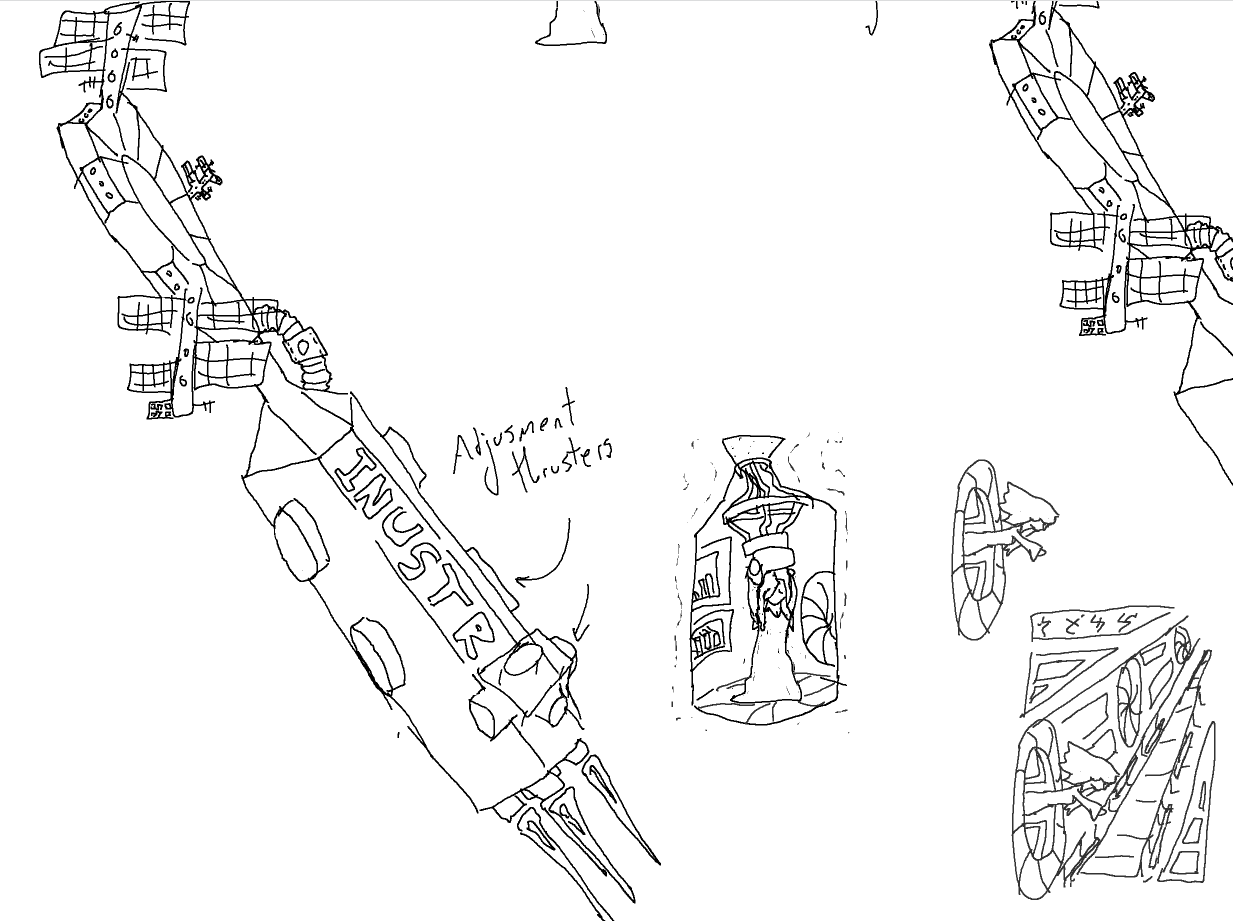 Adjusment
thrusters
INUSTR